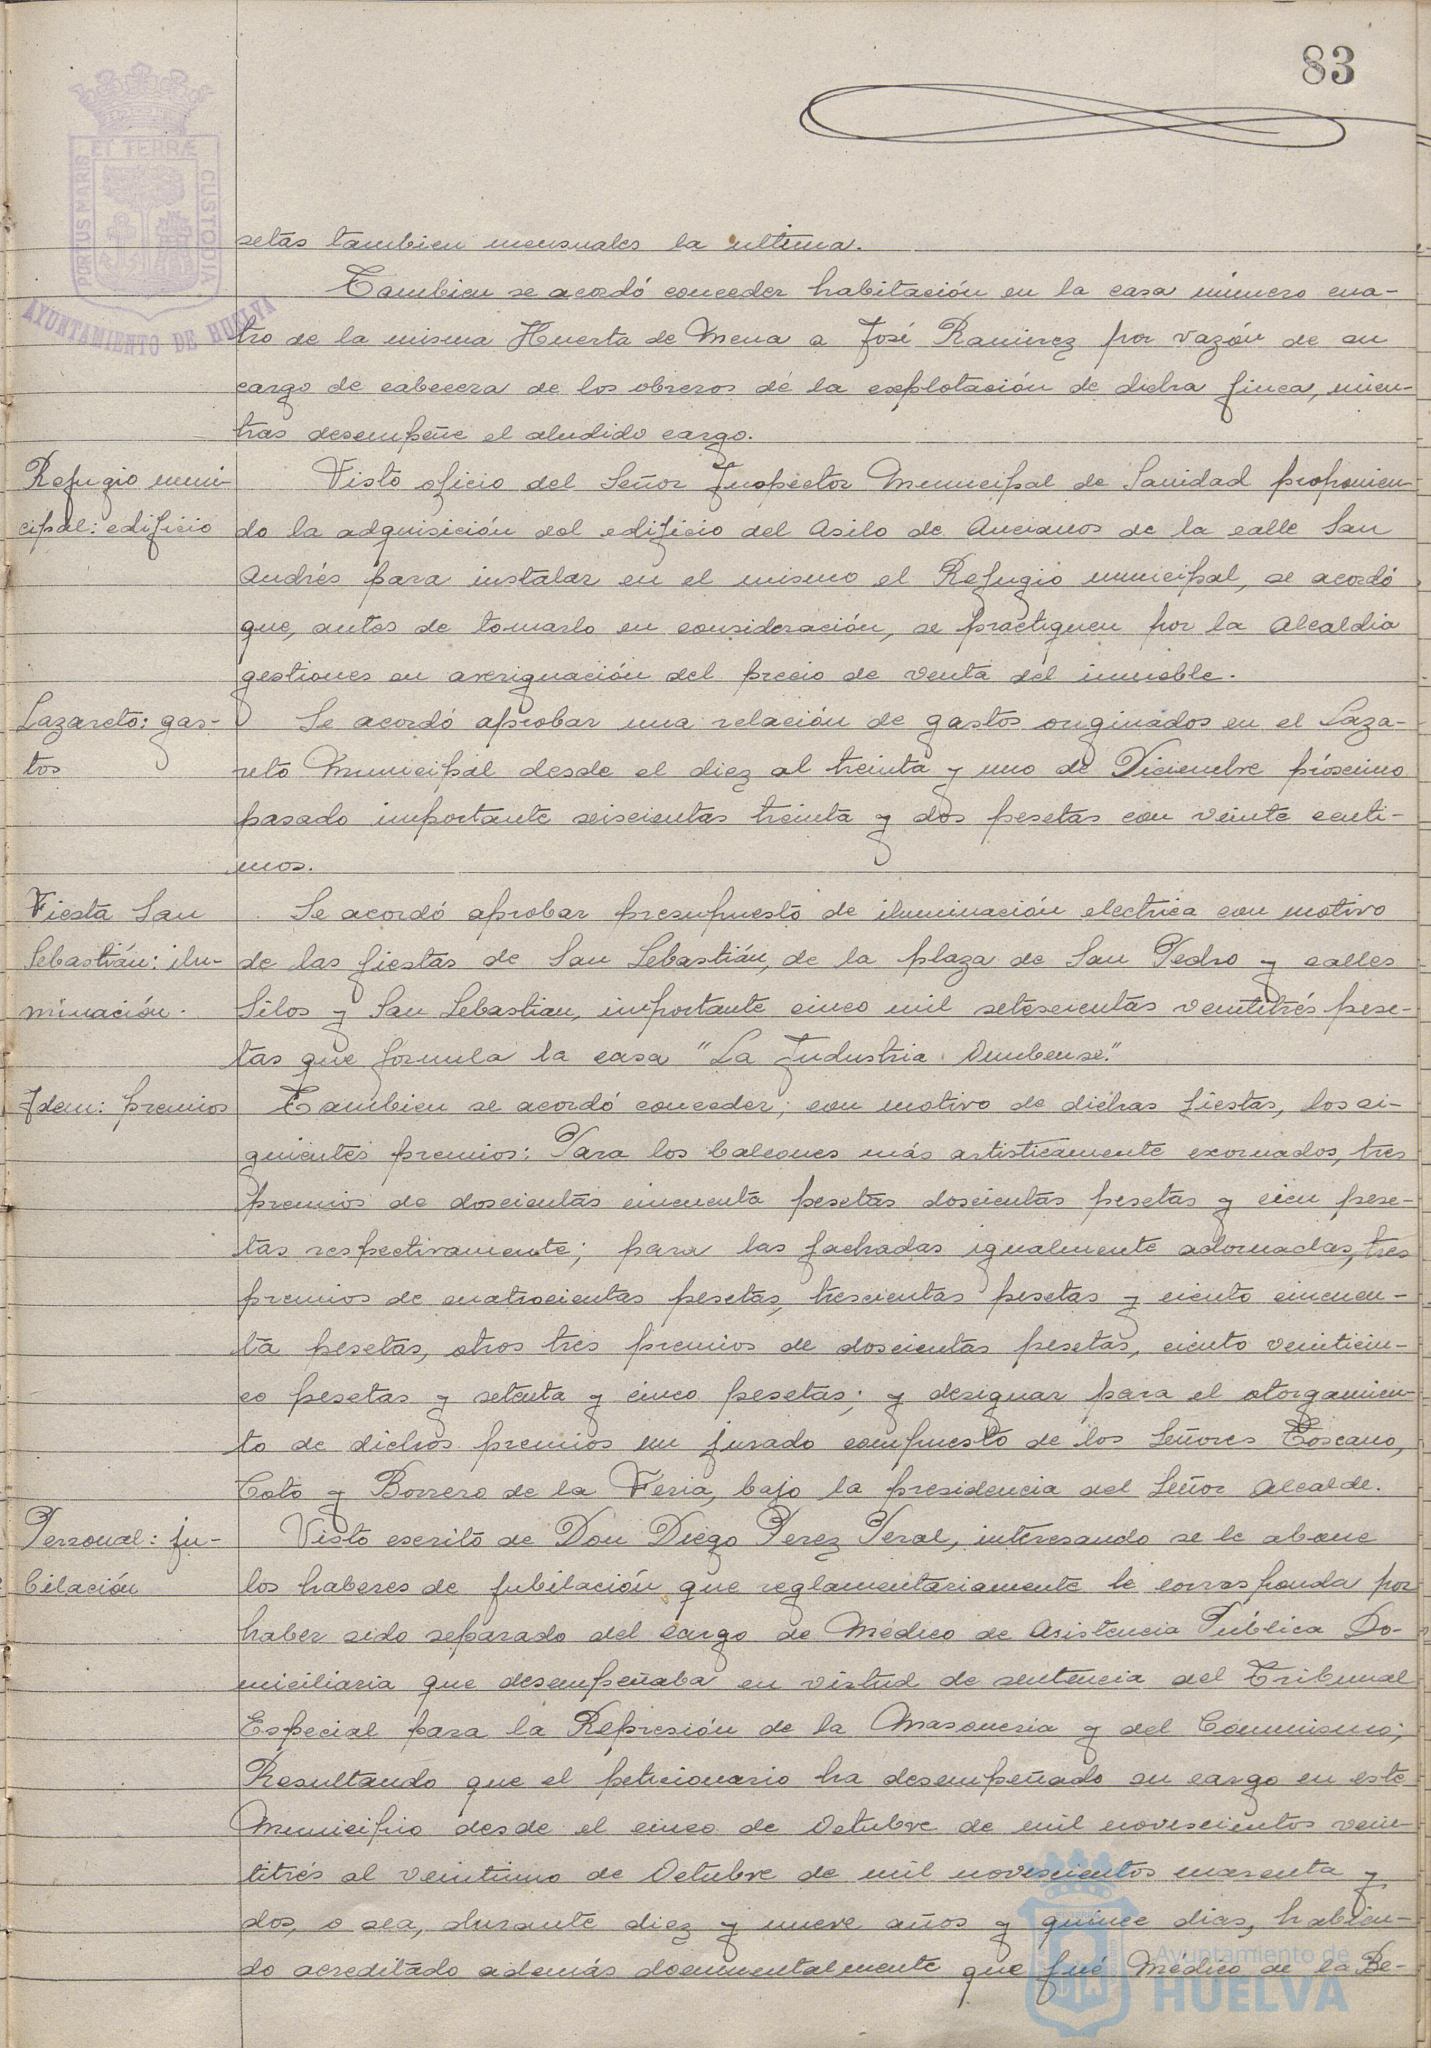 83
PORTUS MARIS ET TERRÆ CUSTODIA
AYUNTAMIENTO DE HUELVA
setas tambien mensuales la ultima.
Tambien se acordó conceder habitación en la casa número cua-
tro de la misma Huerta de Mena a José Ramirez por razón de su
cargo de cabecera de los obreros de la explotación de dicha finca, mien-
tras desempeñe el aludido cargo.
Refugio muni-
cipal: edificio
Visto oficio del Señor Inspector Municipal de Sanidad proponien-
do la adquisición del edificio del Asilo de Ancianos de la calle San
Andrés para instalar en el mismo el Refugio municipal, se acordó
que, antes de tomarlo en consideración, se practiquen por la Alcaldia
gestiones en averiguación del precio de venta del inmueble.
Lazareto: gas-
tos
Se acordó aprobar una relación de gastos originados en el Laza-
reto Municipal desde el diez al treinta y uno de Diciembre próximo
pasado importante seiscientas treinta y dos pesetas con veinte centi-
mos.
Fiesta San
Sebastián: ilu-
minación.
Se acordó aprobar presupuesto de iluminación electrica con motivo
de las fiestas de San Sebastián, de la plaza de San Pedro y calles
Silos y San Sebastian, importante cinco mil setescientas veintitrés pese-
tas que formula la casa "La Industria Onubense".
Idem: premios
Tambien se acordó conceder, con motivo de dichas fiestas, los si-
guientes premios: Para los balcones más artisticamente exornados, tres
premios de doscientas cincuenta pesetas doscientas pesetas y cien pese-
tas respectivamente; para las fachadas igualmente adornadas, tres
premios de cuatrocientas pesetas, trescientas pesetas y ciento cincuen-
ta pesetas, otros tres premios de doscientas pesetas, ciento veinticin-
co pesetas y setenta y cinco pesetas; y designar para el otorgamien-
to de dichos premios un jurado compuesto de los Señores Toscano,
Coto y Borrero de la Feria, bajo la presidencia del Señor Alcalde.
Personal: ju-
bilación
Visto escrito de Don Diego Perez Peral, interesando se le abone
los haberes de jubilación que reglamentariamente le corresponda por
haber sido separado del cargo de Médico de Asistencia Pública Do-
miciliaria que desempeñaba en virtud de sentencia del Tribunal
Especial para la Represión de la Masoneria y del Comunismo;
Resultando que el peticionario ha desempeñado su cargo en este
Municipio desde el cinco de Octubre de mil novescientos vein-
titrés al veintiuno de Octubre de mil novescientos cuarenta y
dos, o sea, durante diez y nueve años y quince dias, habien-
do acreditado además documentalmente que fué Médico de la Be-
Ayuntamiento de
HUELVA